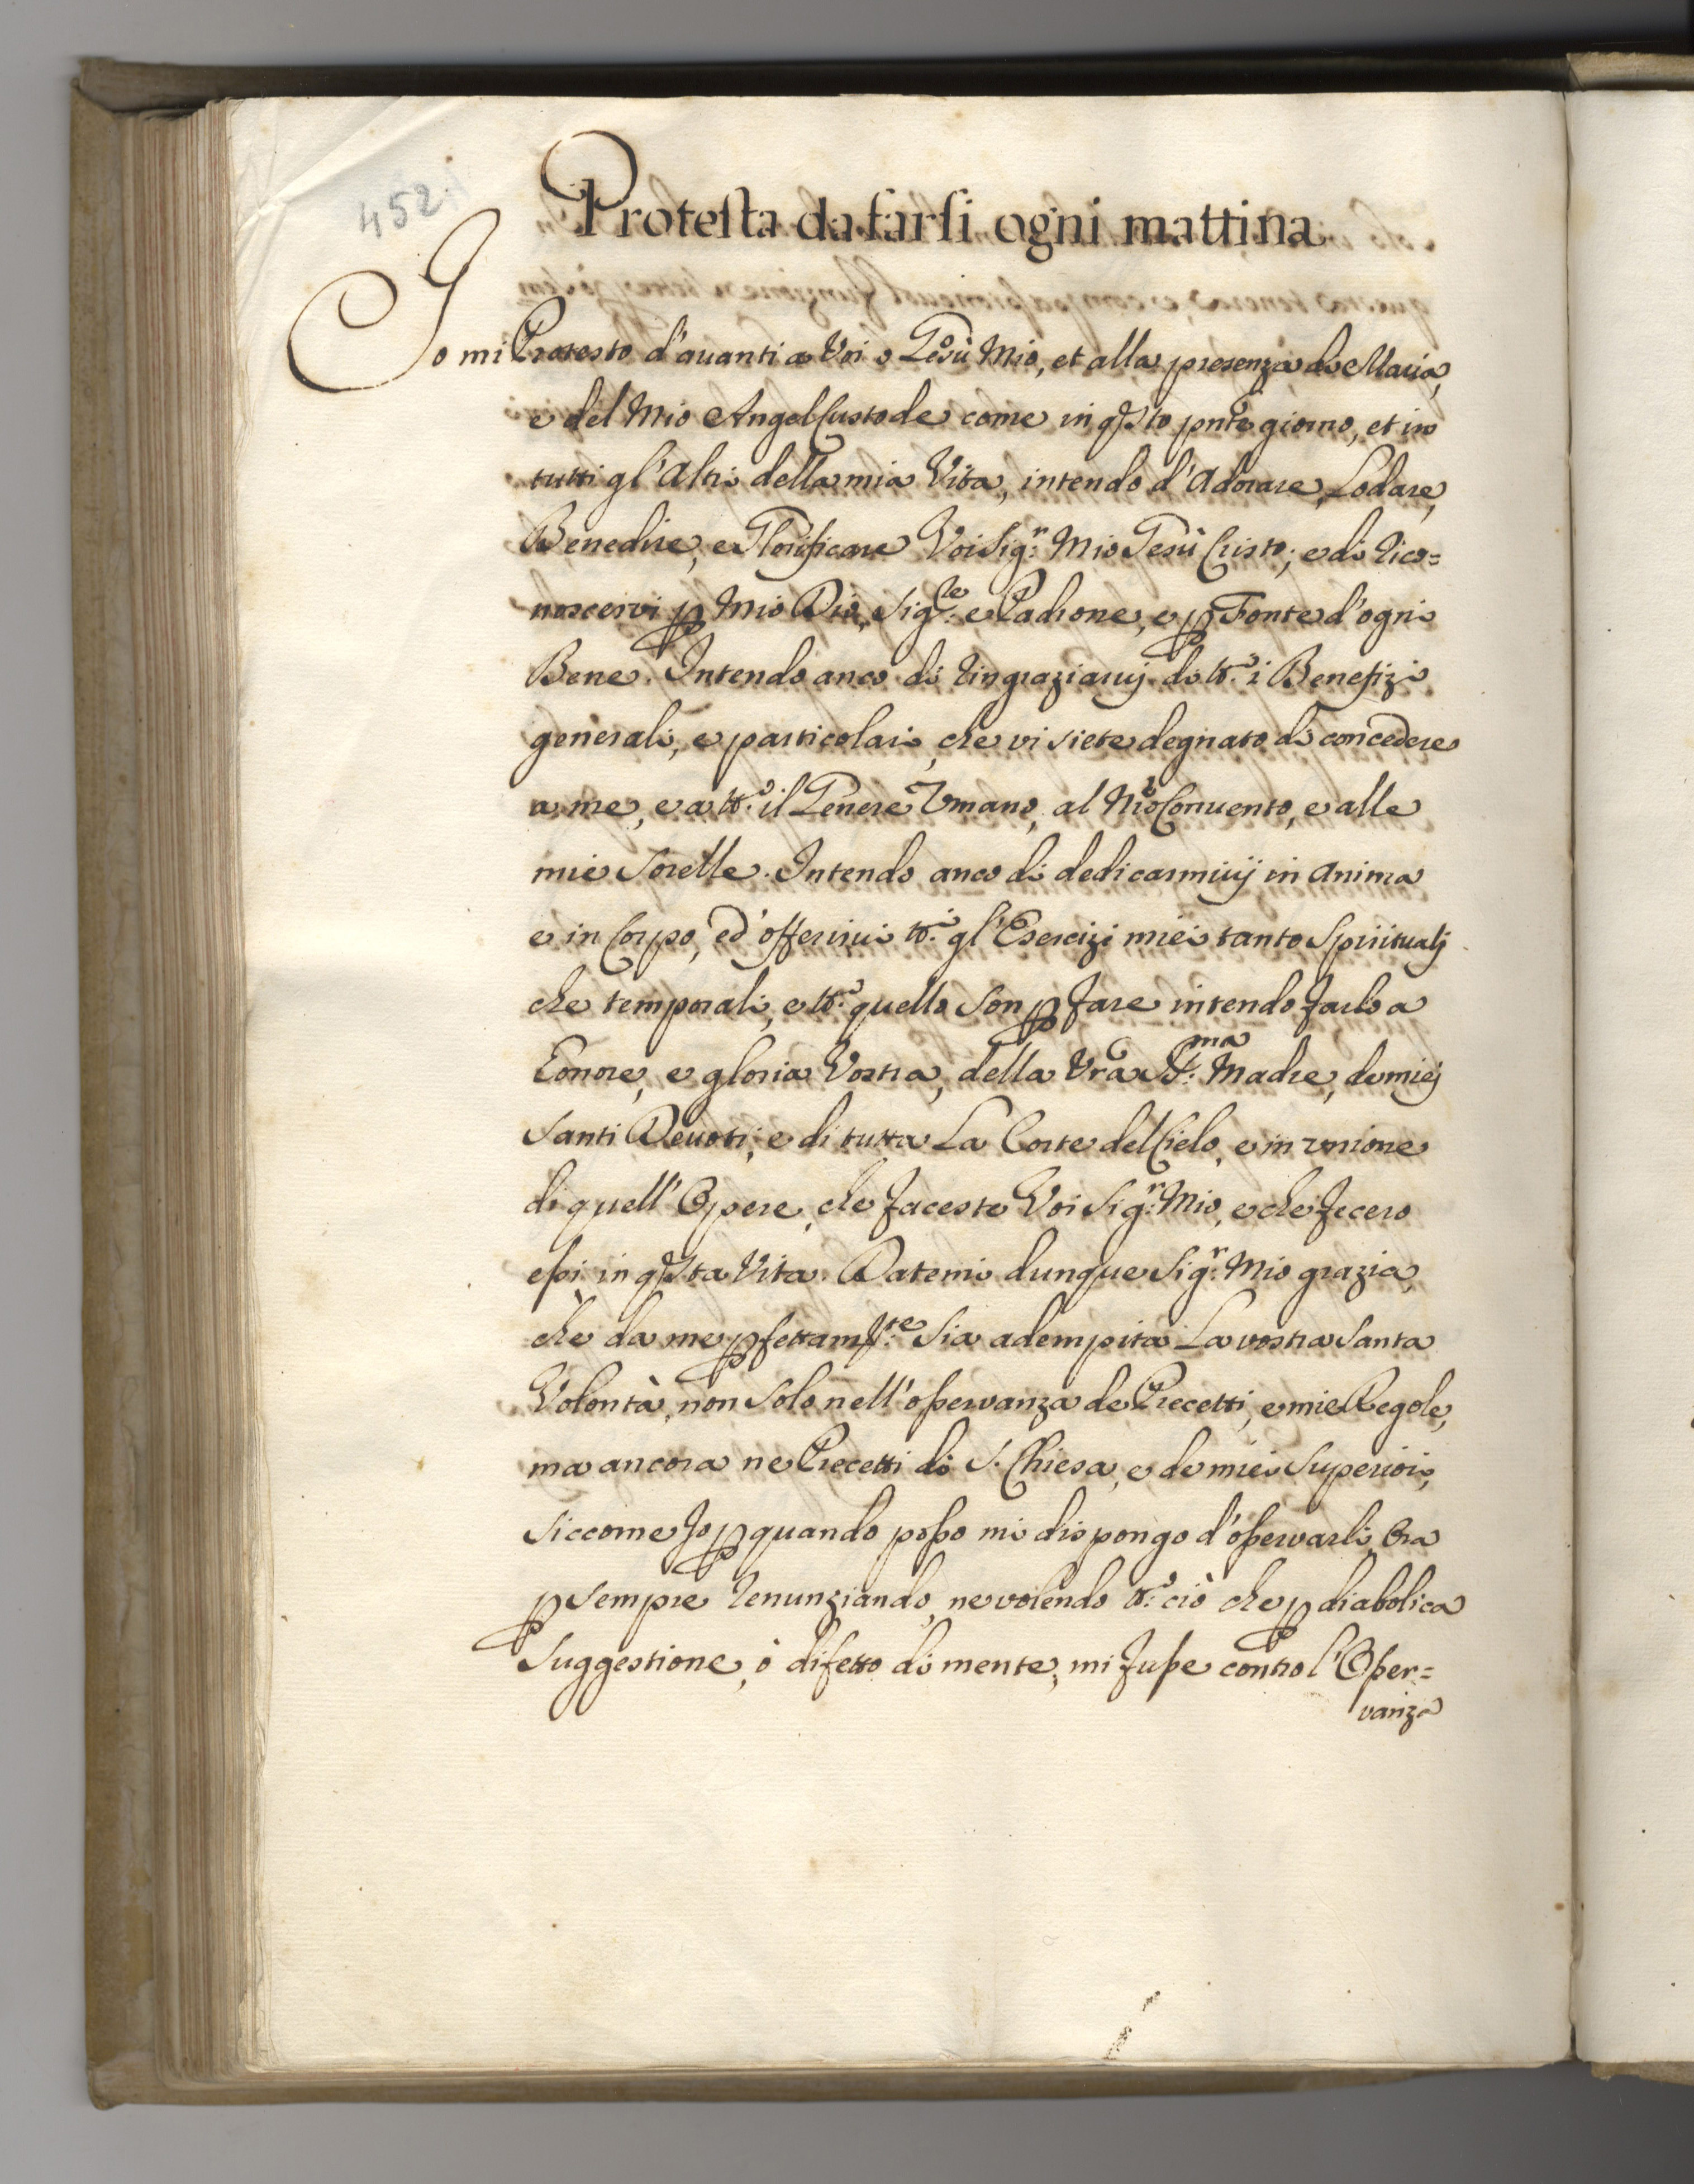 452
Protesta da farsi ogni mattina
Io mi Protesto d'auanti a Voi o Gesù Mio, et alla presenza di Maria,
e del Mio Angel Custode come in qsto pnte giorno, et in
tutti gl'Altri della mia Vita, intendo d'Adorare, Lodare,
Benedire, e Glorificare Voi Sigr: Mio Gesù Cristo; e di rico=
noscervi p Mio Dio, Sigre: e Padrone, e p Fonte d'ogni
Bene. Intendo anco di ringraziarvj di tto: i Benefizi
generali, e particolari, che vi siete degnato di concedere
a me, e a tto: il Genere Vmano, al Mio Conuento, e alle
mie Sorelle. Intendo anco di dedicarmivj in Anima
e in Corpo, ed' offerirui tti: gl'Esercizi miei tanto Spiritualj
che temporali, e tto: quello son p fare intendo farlo a
Eonore, e gloria Vostra, della Vra Sma: Madre, de miej
Santi Deuoti; e di tutta La Corte del Cielo, e in vnione
di quell'Opere, che faceste Voi Sigr: Mio, e che fecero
essi in qsta Vita. Datemi dunque Sigr: Mio grazia,
chè da me pfettamte: sia adempita La vostra Santa
Volontà, non solo nell'osservanza de Precetti, e mie Regole,
ma ancora ne Precetti di S. Chiesa, e de miei Superiori,
siccome Io p quando posso mi dispongo d'osservarli, Ora
p sempre renunziando, ne volendo tto: ciò che p diabolica
Suggestione, ò difetto di mente, mi fusse contro l'Osser=
vanza